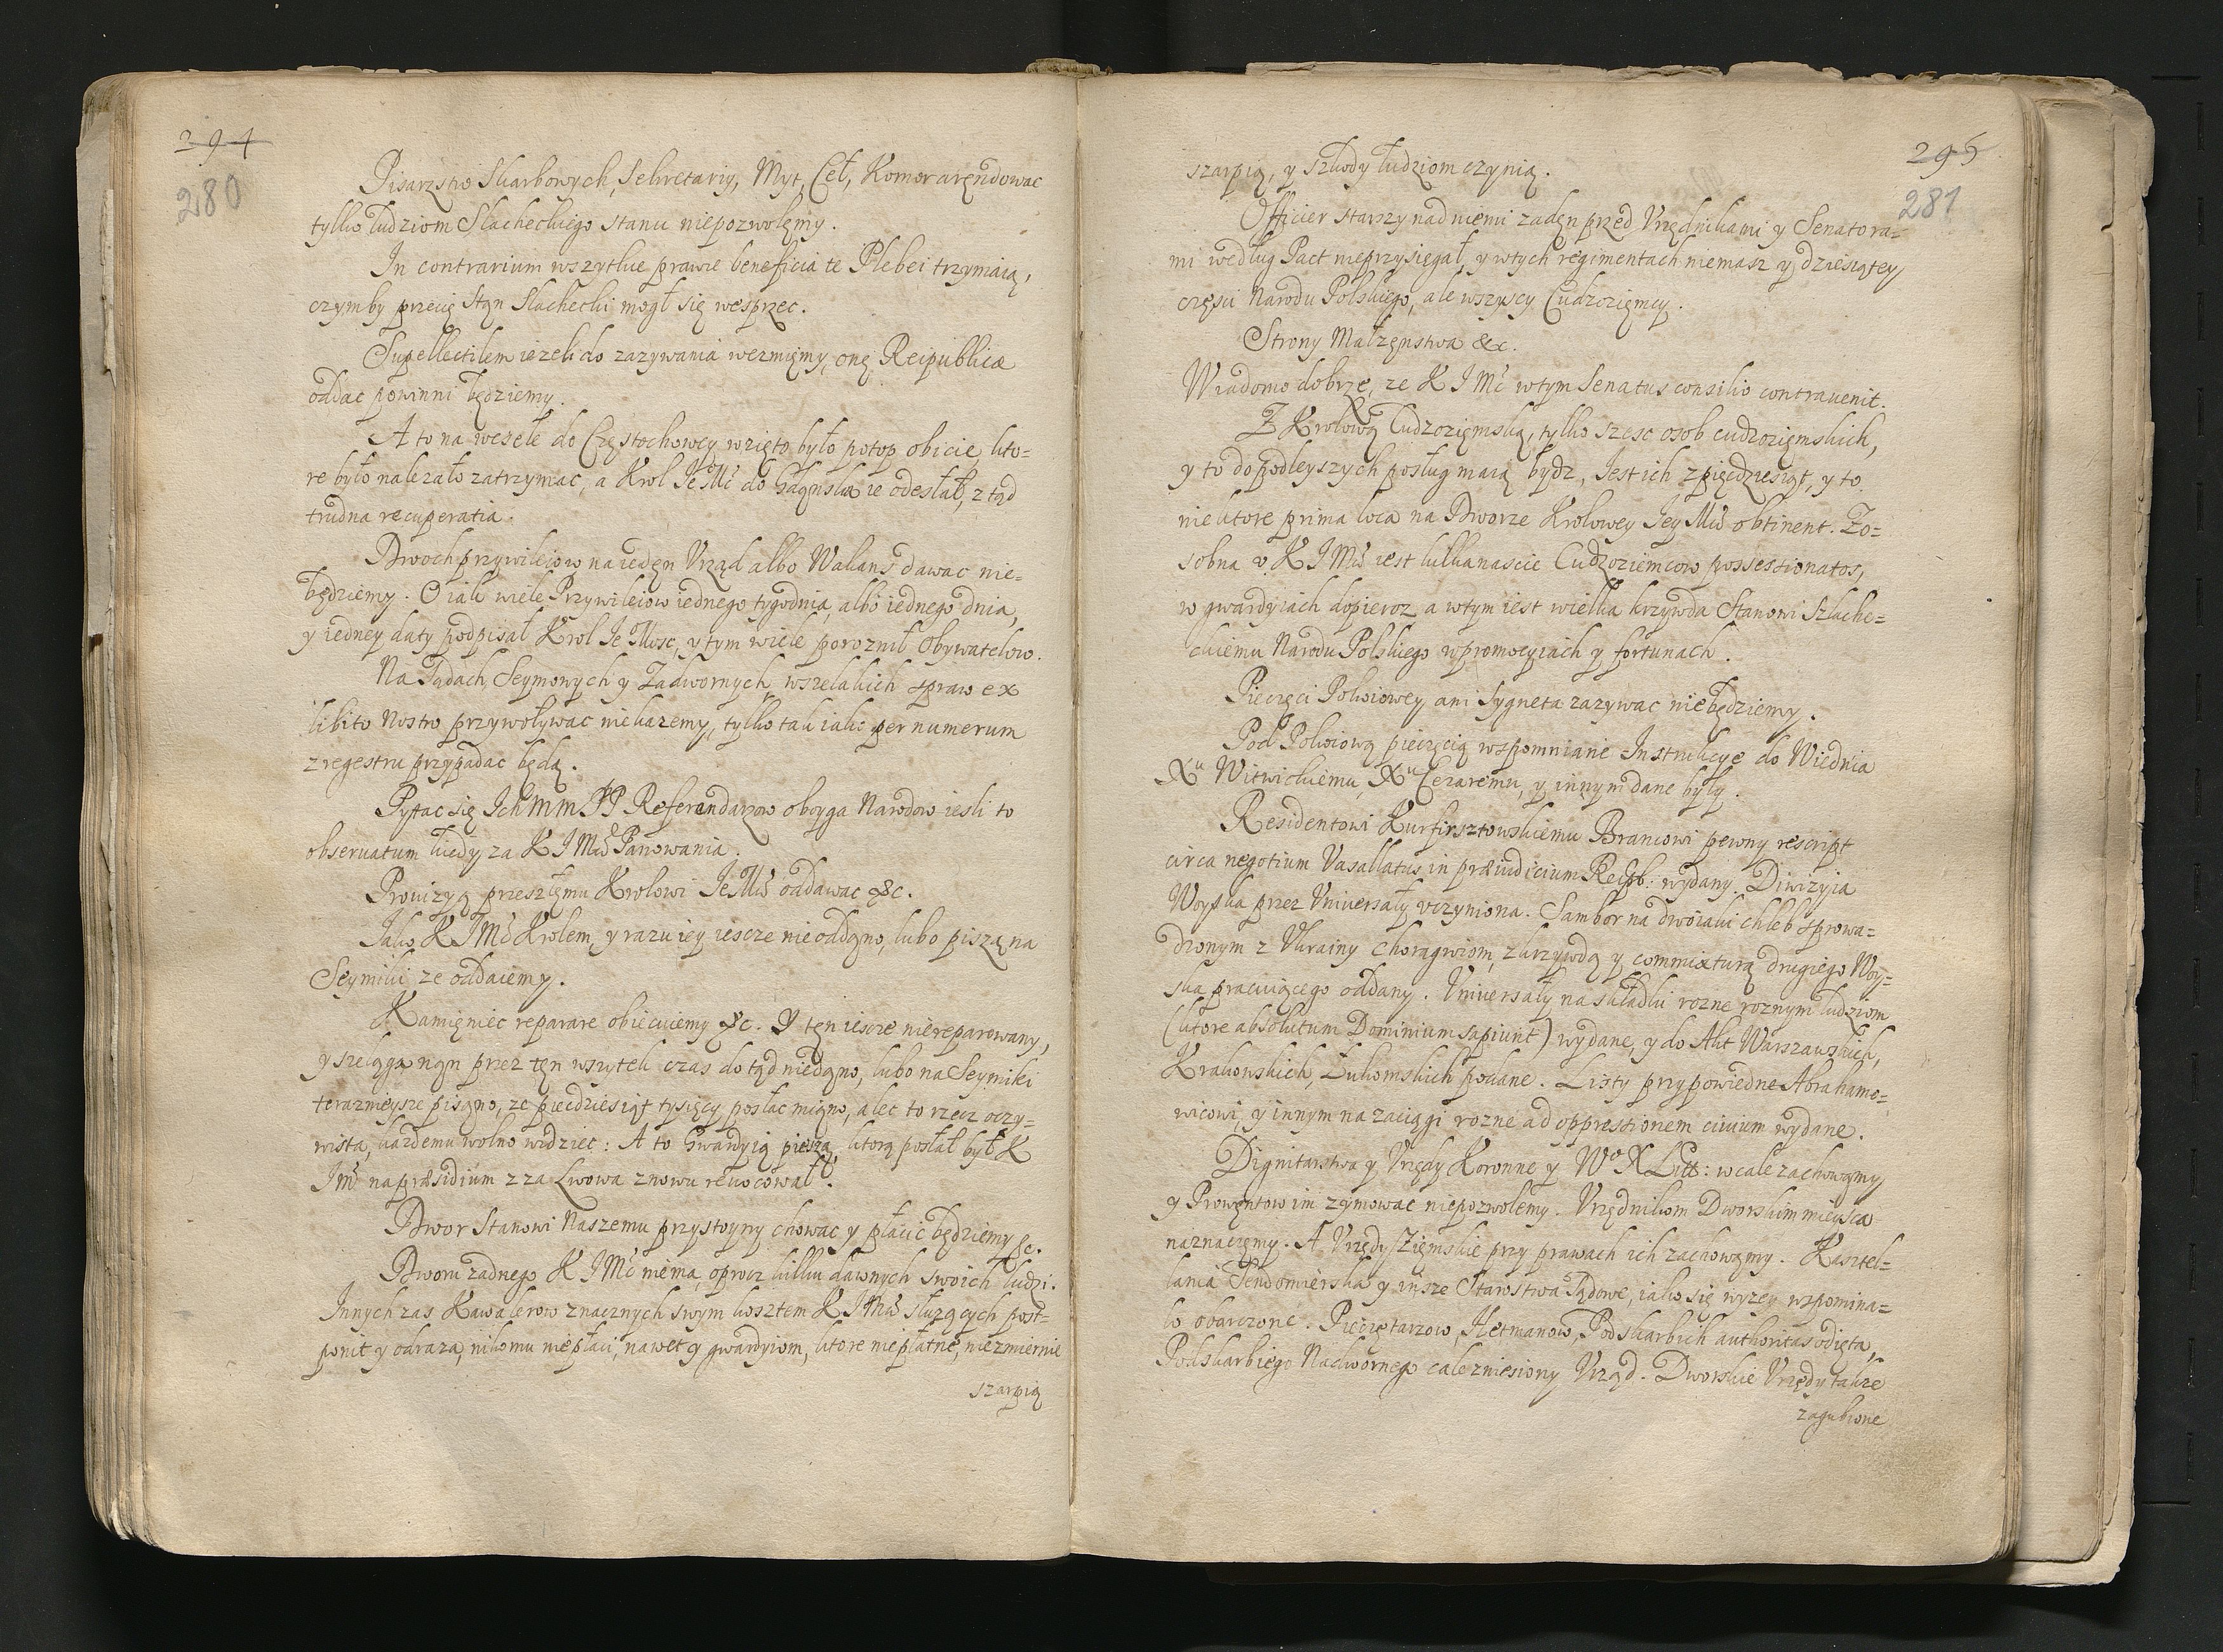 294
280
Pisarzstw Skarbowych, Sekretariy, Myt, Ceł, Komor aręndowac
tylko ludziom Slacheckiego stanu niepozwolęmy.
In contrarium wszytkie prawie beneficia te Plebei trzymaią,
czymby przecię Stąn Slachecki mogł się wesprzec.
Supellectilem iezeli do zazywania wezmięmy, onę Reipublicæ
oddac powinni będziemy.
A to na wesele do Częstochowey wzięto było potop obicie, kto-
re było nalezało zatrzymac, a Krol Je Mć do Gdąnska ie odesłał, z tąd
trudna recuperatia.
Dwoch przywileiow na iedęn Vrząd albo Wakans dawac nie-
będziemy. O iak wiele Przywileiow iednego tygodnia, albo iednego dnia,
y iedney daty podpisał Krol Je Mosc, y tym wiele poroznił Obywatelow.
Na Sądach Seymowych y Zadwornych, wszelakich spraw ex
libito Nostro przywoływac niekazemy, tylko tak iako per numerum
z regestru przypadac będą.
Pytac się Ich mm PP Referendarzow oboyga Narodow iesli to
obseruatum kiedy za K J Mći Panowania.
Prouizyą przeszłęmu Krolowi Je Mći oddawac &c.
Jako K J Mć Krolem, y razu iey iescze nie oddąno, lubo piszą na
Seymiki, ze oddaiemy.
Kamięniec reparare obiecuiemy &c. Y tęn iescze niereparowany,
y szelągą nąn przez tęn wszytek czas do tąd niedąno, lubo na Seymiki
terazmieysze pisąno, ze piecdziesiąt tysięcy posłac miąno, alec to rzecz oczy-
wista, kazdemu wolno widziec: A to Gwardyią pieszą, ktorą posłał był K
J Mć na præsidium z za Lwowa znowu reuocował.
Dwor Stanowi Naszemu przystoyny chowac y płacic będziemy &c.
Dworu zadnego K J Mć niema, oprocz kilku dawnych swoich ludzi.
Innych zas Kawalerow znacznych swym kosztem K J Mći słuzących post-
ponit y odraza, nikomu niepłaci, nawet y gwardyiom, ktore niepłatne, niezmiernie
szarpią
295
281
szarpią, y szkody ludziom czynią.
Officier starszy nad niemi zadęn przed Vrzędnikami y Senatora-
mi według Pact nieprzysięgał, y w tych regimentach niemasz y dziesiątey
częsci Narodu Polskiego, ale wszyscy Cudzozięmcy.
Strony Małzęnstwa &c.
Wiadomo dobrze, ze K J Mć w tym Senatus consilio contrauenit.
Z Krolową Cudzozięmską, tylko szesc osob cudzozięmskich,
y to do podleyszych posług maią bydz, Jest ich z pięcdziesiąt, y to
niektore prima loca na Dworze Krolowey Jey Mći obtinent. Zo-
sobna v K J Mći iest kilkanascie Cudzoziemcow possessionatos,
w gwardyiach dopieroz, a w tym iest wielka krzywda Stanowi Szlache-
ckiemu Narodu Polskiego w promocyiach y fortunach.
Pieczęci Pokoiowey ani Sygneta zazywac niebędziemy.
Pod Pokoiową pieczęcią wspomniane Instrukcye do Wiednia
Xu Witwickiemu Xu Cezaremu, y innym dane były.
Residentowi Kurfirsztowskiemu Brancowi pewny rescript
circa negotium Vasallatus in præiudicium Reipb: wydany. Diwizyia
Woyska przez Vniuersały vczyniona. Sambor na dwoiaki chleb sprowa-
dzonym z Vkrainy chorągwiom, z krzywdą y commixturą drugiego Woy-
ska pracuiącego oddany. Vniuersały na składki rozne roznym ludziom
(ktore absolutum Dominium sapiunt) wydane, y do Akt Warszawskich,
Krakowskich, Łukowskich podane. Listy przypowiedne Abrahamo-
wicowi, y innym na zaciągi rozne ad oppressionem ciuium wydane.
Dignitarstwa y Vrzędy Koronne y Wo X Litt: wcale zachowąmy
y Prowęntow im zymowac niepozwolemy. Vrzędnikom Dworskim mieysca
naznaczęmy. A Vrzędy Zięmskie przy prawach ich zachowąmy. Kasztel-
lania Sendomierska y insze Starostwa Sądowe, iako się wyzey wspomina-
ło obarczone. Pieczętarzow, Hetmanow, Podskarbich authoritas odięta,
Podskarbiego Nadwornego cale zniesiony Vrząd. Dworskie Vrzędy takze
zagubione